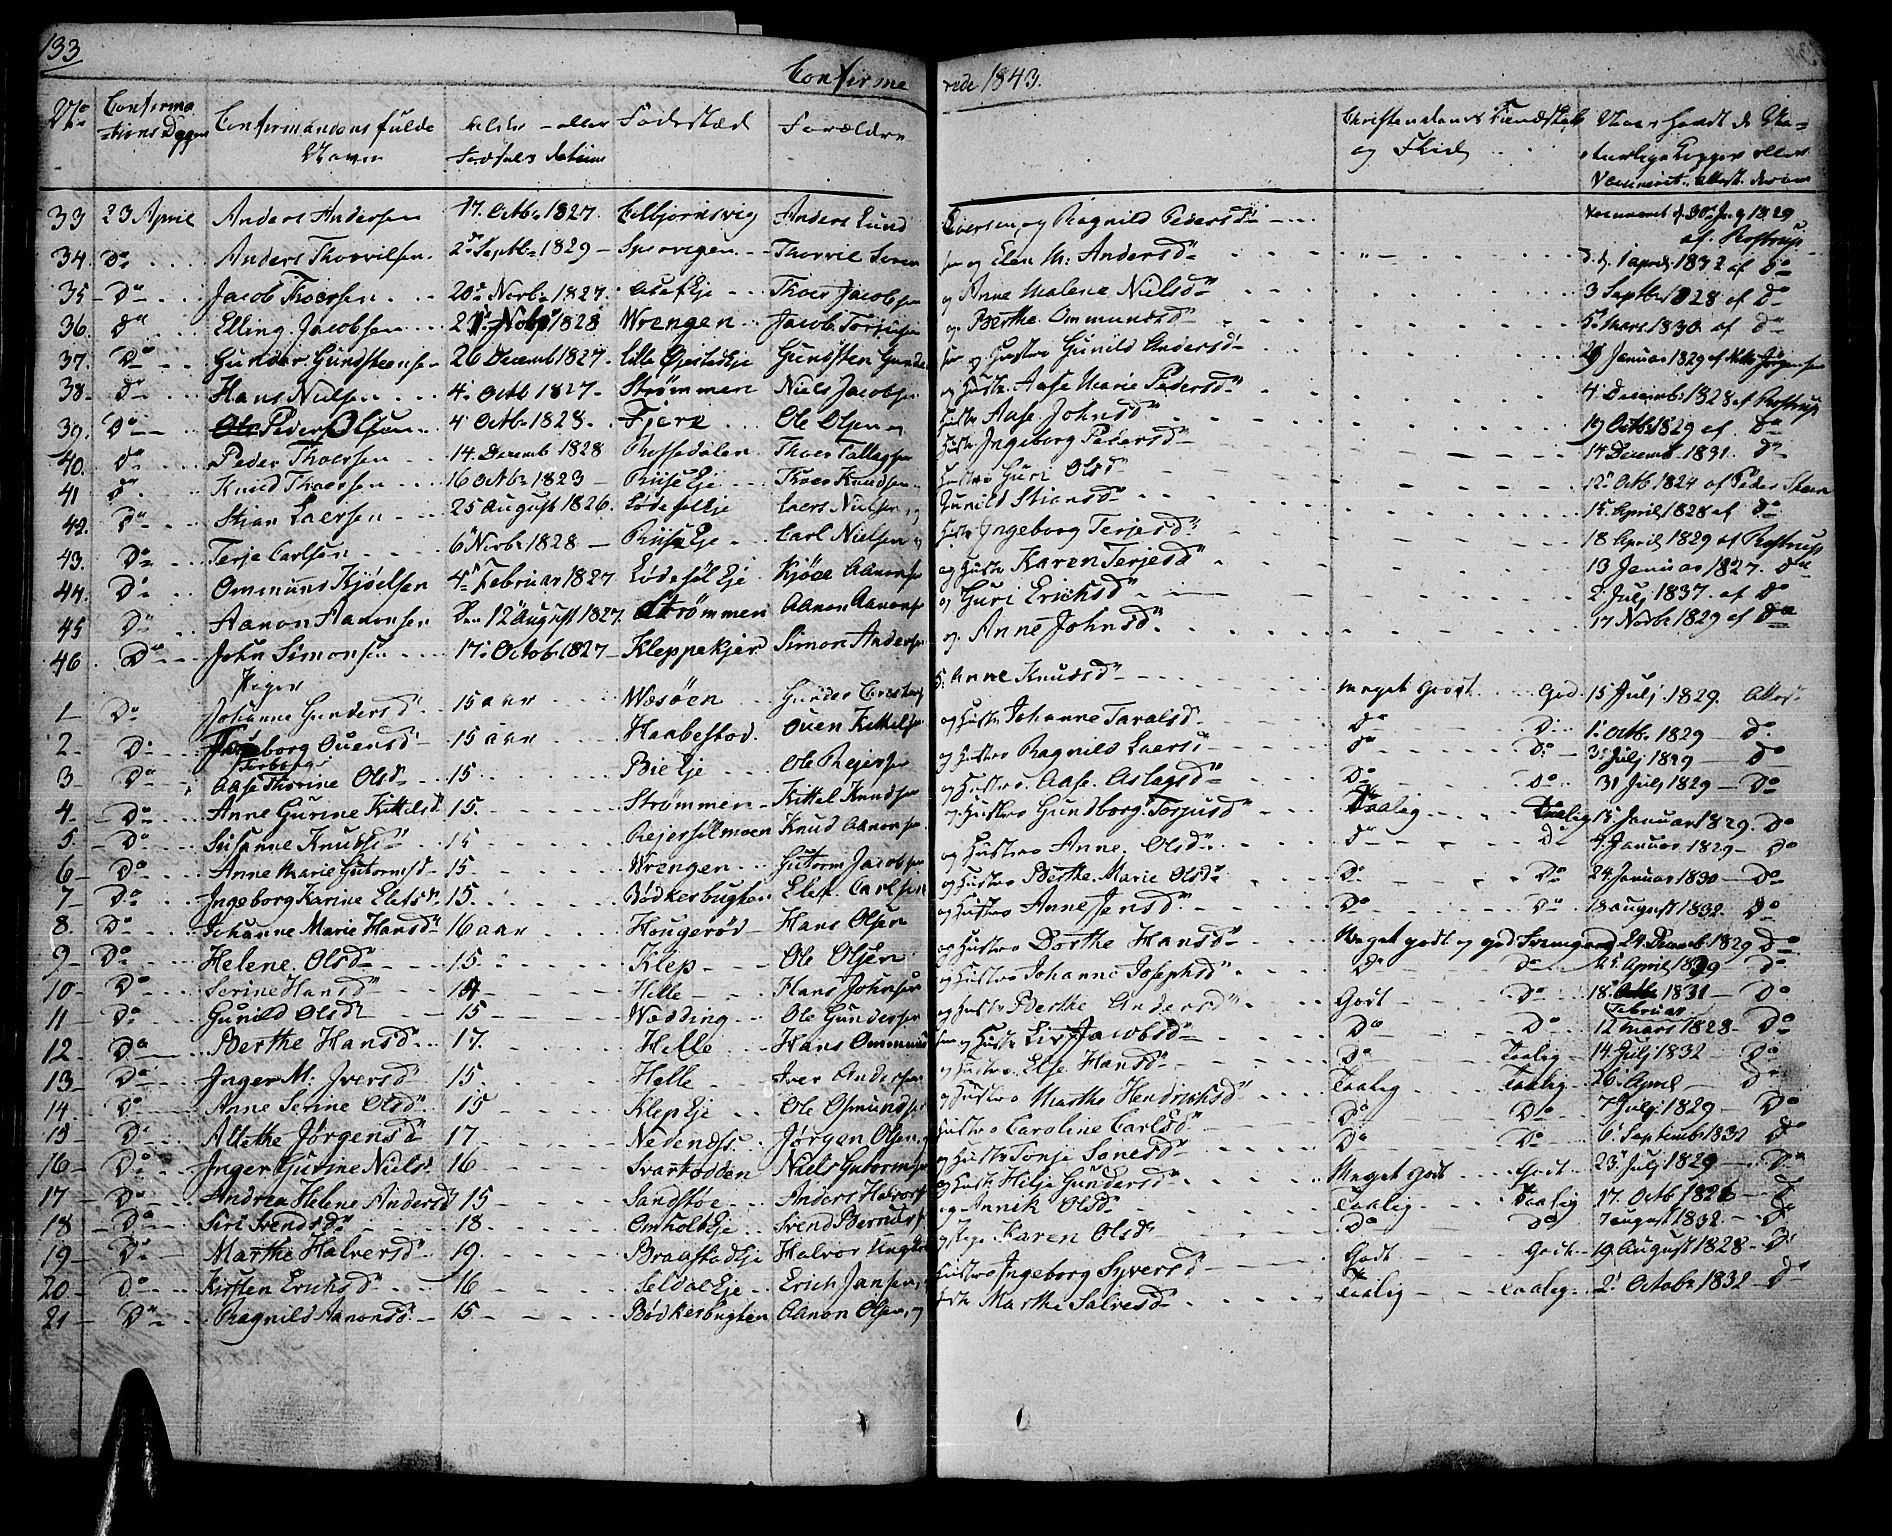 133
Confirme rede 1843.
No Confirmations Dagen Confirmandens fulde Navn Alder eller Fødsels datum Fødested Forældre Christendoms Kundskab og Flid Naar havdt de Naturlige Kopper eller Vaccineret, attest derom
33 23 April Anders Andersen 17. Octbr 1827. Eilbjørnsvig Anders Lund Eversen, og Ragnild Pedersd Vaccineret d. 30 Aug 1829 af Rostrup
34. Do Anders Thorvilsen 2 Septb 1829 Thorvil Soren sen og Elen M: Andersd D. d. 1 april 1832 af Do
35 Do Jacob Thoersen 20 Novb 1827. Thoer Jacobsen og Anne Malene Nielsd 3 Septb 1828 af Do
36. Do Elling Jacobsen 1828 Wrengen Jacob og Berthe Ommundsd 5 Mars 1830 af Do
37. Do Gunder Gundstensen 26 Decemb 1827. Gundsten Gunder sen og Hustro Gunild Andersd 29 Januar 1829 af Jørgensen
38. Do Hans Nielsen 4 Octb 1827 Strømmen Niels Jacobsen og Hustr. Aase Marie Pedersd 4 Decemb 1828 af Rostrup
39. Do Peder Olsen 4 Octb 1828. Fjere Ole Olsen og Hustr Aase Johnsd 19 Octb 1829 af Do
40. Do Peder Thoersen 14. Decemb 1828 Rossedalen Thoer Tallagsen Hustr. Ingeborg Pedersd 14 Decemb 1831. Do
41 Do Knud Thoersen 16 Octb 1823 Riise Eje Thoer Knudsen Hustro Guri Olsd 12 Octb 1824 af Peder Steen
42. Do Stian Laersen 25 August 1826. Lødesøl Eje Laers Nielsen, og Gunild Stiansd 15 April 1828 af Do
43. Do Terje Carlsen 6 Novb 1828 Riise Eje Carl Nielsen og Hustr Ingeborg Terjesd 18 April 1829 af Rostrup
44. Do Ommund Kjøelsen 4 Februar 1827 Lødesøl Eje Kjøel Aanonsen og Hustr Karen Terjesd 13 Januar 1827. Do
45 Do Aanon Aanonsen Den 12 August 1827. Strømmen Aanon Aanonsen og Guri Erichsd 2 July 1837. af Do
46 Do John Simonsen 17. Octob 1827 Kleppekjer Simon Andersen og Anne Johnsd 17 Novb 1829 af Do
Piger
1 Do Johanne Gundersd 15 aar Wesøen Gunder S. Anne Knudsd meget Godt God 15 July 1829. Attest
2 Do Ingeborg Ouensd 15 aar Haabestad. Ouen Kittelsen og Hustr Johanne Taralsd Do Do 1 Octb 1829 Do
3 Do Aase Thorine Olsd 15 Bie Eje Ole Rejersen og Hustro Ragnild Laersd Do Do 3 July 1829 Do
4 Do Anne Gurine Kittelsd 15. Strømmen Kittel Knudsen og Hustro. Aase Aslagsd Do Do 31 July 1829 Do
5. Do Susanne Knudsd 15 Rejersølmoen Knud Aanonsen og Hustro Gundborg Torjusd Taalig Taalig 15 Januar 1829. Do
6 Do Anne Marie Gutormsd 15 Wrengen Gutorm Jacobsen og Hustro Anne Olsd Do Do 4 Januar 1829 Do
7 Do Ingeborg Karine Elefsd. 15. Bødkerbugten Elef Carlsen og Hustro Berthe Marie Olsd Do Do 24 Januar 1830 Do
8. Do Johanne Marie Hansd 16 aar Hougerød Hans Olsen og Hustro Anne Jensd Do Do 18 august 1832. Do
9 Do Helene Olsd 15 Klep Ole Olsen og Hustro Dorthe Hansd Meget godt og god Fremgang 24 Decemb 1829 Do
10 Do Serine Hansd 14 Helle Hans Johnsen og Hustro Johanne Josephsd Do Do April 1829 Do
11 Do Gunild Olsd 15 Wedding Ole Gundersen og Hustro Berthe Andersd Godt Do 18 Februar 1831 Do
12 Do Berthe Hansd 17. Helle Hans Ommund sen og Hustr Siri Jacobsd Do Do 12 Mars 1828 Do
13 Do Inger M: Iversd 15 Helle Iver Andersen og Hustro. Else Hansd Do Taalig 14 July 1832 Do
14 Do Anne Serine Olsd 15 Klep Eje Ole Osmundsen og Hustro Marthe Hendrichsd Taalig Taalig 26 April Do
15 Do Allethe Jørgensd 17 Nedenæs Jørgen Olsen, og Hustro Caroline Carlsd Do Do 7 July 1829 Do
16 Do Inger Gurine Nielsd. 16 Svartodden Niels Gutormsen og Hustr Tonje Sønesd Do Do 6 Septemb 1832 Do
17 Do Andrea Helene Andersd 15 Sandstøe Anders Halvorsen og Hustr Helje Gundersd Meget Godt Godt 23 July 1829 Do
18 Do Siri Svendsd 18 Omholt Eje Svend Berntsen og Annik Olsd Taalig Taalig 17. Octb 1826 Do
19 Do Marthe Halversd 19. Braastad Eje Halvor og Pige Karen Olsd Do Do 7 August 1832 Do
20 Do Kirsten Erichsd 16 Seldal Eje Erich Jansen, og Hustro Ingeborg Syversd Godt Godt 19 August 1828 Do
21 Do Ragnild Aanonsd 15 Bødkerbugten Aanon Olsen, og Hustr Marthe Salvesd Taalig Taalig 2 Octob 1832 Do